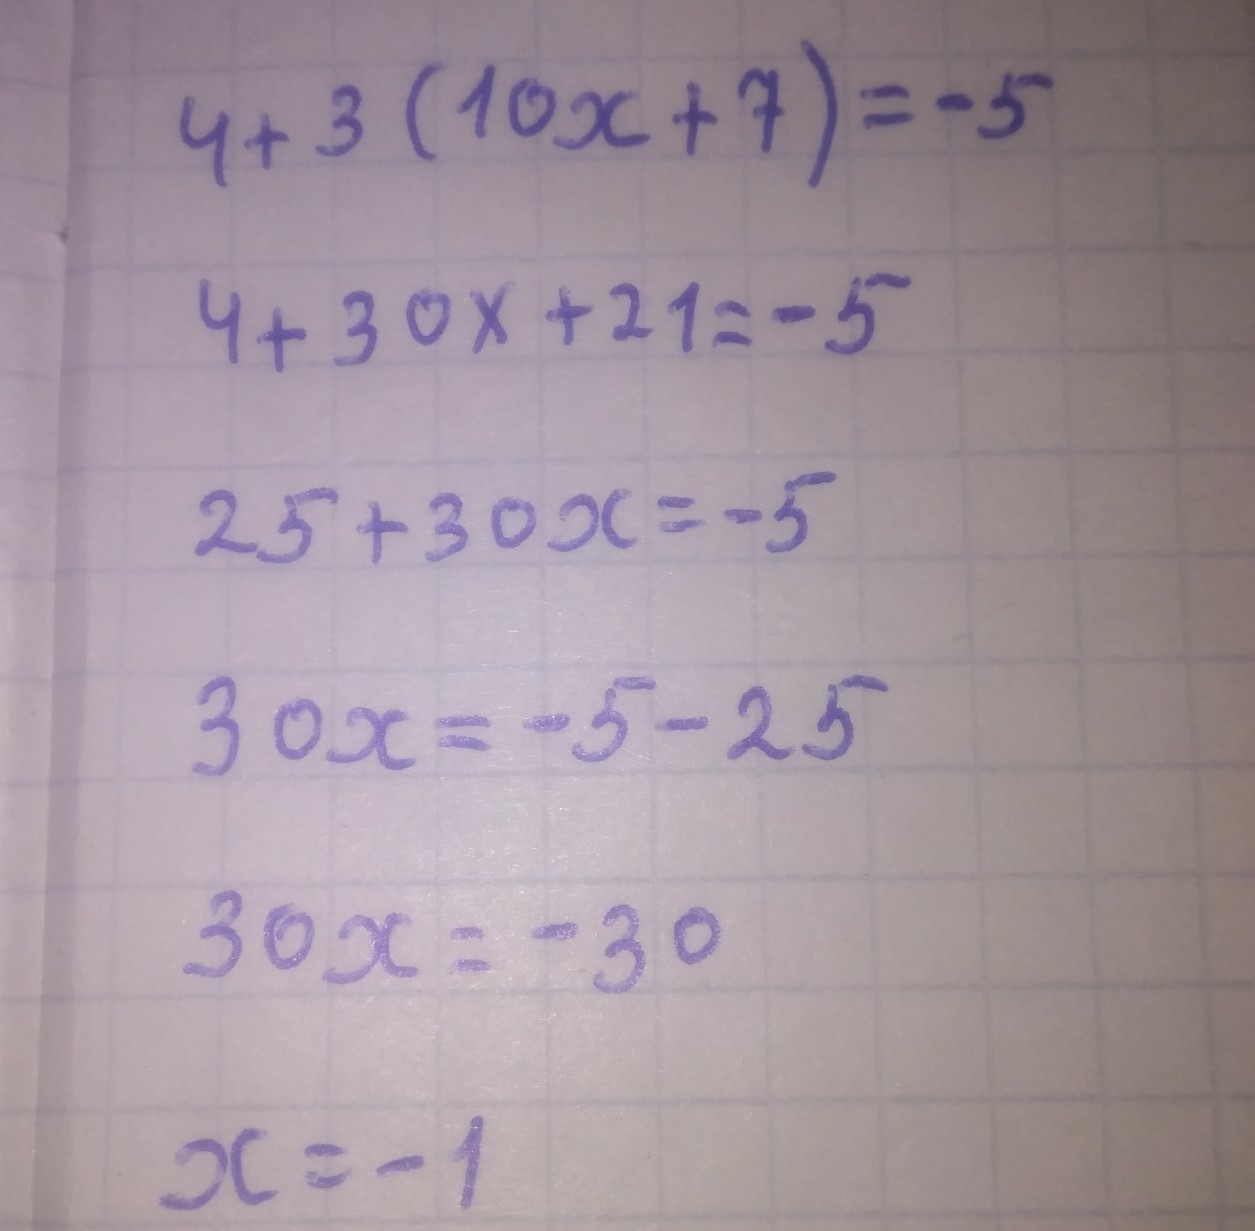 4+3(10x+7)=-5
4+30x+21=-5
25+30x=-5
30x=-5-25
30x=-30
x=-1